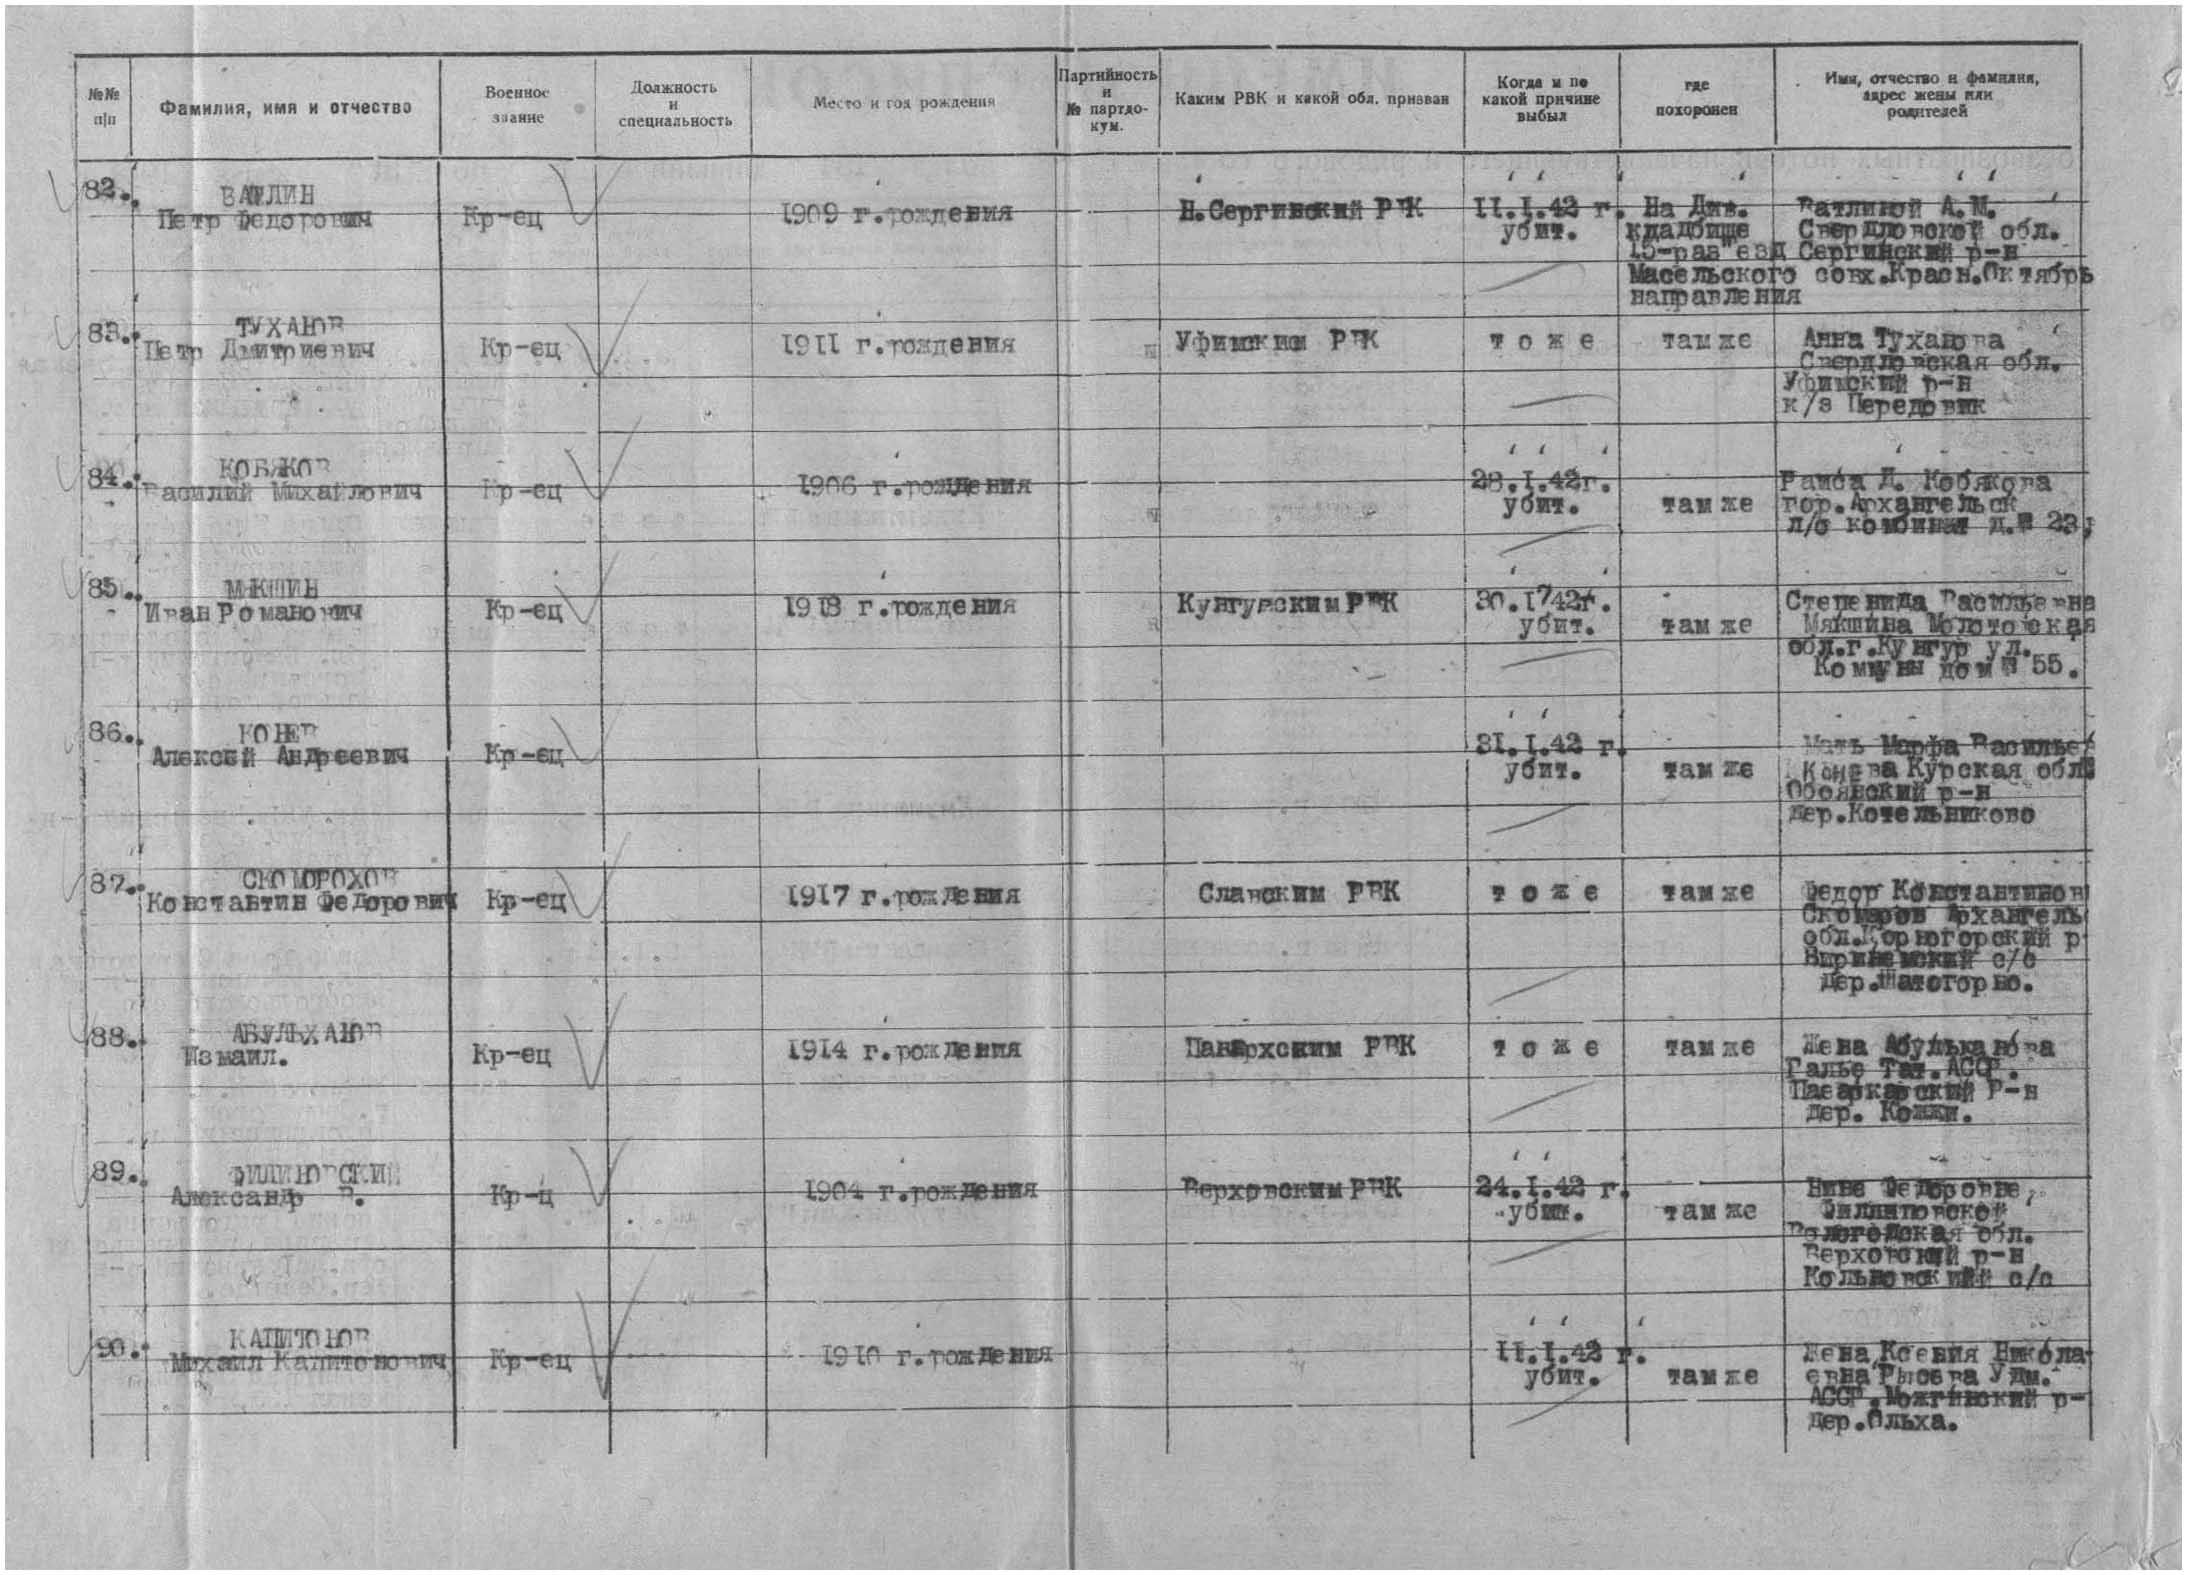 №№ п|п
Фамилия, имя и отчество
Военное звание
Должность и специальность
Место и год рождения
Партийность и № партдо- кум.
Каким РВК и какой обл. призван
Когда и по какой причине выбыл
где похоронен
Имя, отчество и фамилия, адрес жены или родителей
82.
ВАТЛИН
Петр Федорович
Кр-ец
1909 г.рождения
Н.Сергинский РВК
11.1.42 г.
убит.
На Див.
кладбище
15-раз"езд
Масельского
направления
Ватлиной А.М.
Свердловской обл.
Сергинский р-н
совх.Красн.Октябрь
83.
ТУХАНОВ
Петр Дмитриевич
Кр-ец
1911 г.рождения
Уфимским РВК
тоже
там же
Анна Туханова
Свердловская обл.
Уфимский р-н
к/з Передовик
84.
КОБЯКОВ
Василий Михайлович
Кр-ец
1906 г.рождения
28.1.42г.
убит.
там же
Раиса Д. Кобякова
гор.Архангельск
л/о комбинат д.№ 23,
85.
МЯКШИН
Иван Романович
Кр-ец
1918 г.рождения
Кунгурским РВК
30.1.42г.
убит.
там же
Степенида Васильевна
Мякшина Молотовская
обл.г.Кунгур ул.
Коммуны дом № 55.
86.
КОНЕВ
Алексей Андреевич
Кр-ец
31.1.42 г.
убит.
там же
Мать Марфа Василье
Конева Курская обл.
Обоянский р-н
дер.Котельниково
87.
СКОМОРОХОВ
Константин Федорович
Кр-ец
1917 г.рождения
Славским РВК
тоже
там же
Федор Константинов
Скомаров Архангель
обл.Корногорский р
с/с
дер.Шатогорно.
88.
АБУЛЬХАНОВ
Измаил.
Кр-ец
1914 г.рождения
РВК
тоже
там же
Жена Абульканова
Галье Тат.АССР.
Р-н
дер. Кожжи.
89.
ФИЛИНОВСКИЙ
Александр В.
Кр-ц
1904 г.рождения
Верховским РВК
24.1.42 г.
убит.
там же
Нине Федоровне,
Вологодская обл.
Верховский р-н
с/с
90.
КАПИТОНОВ
Михаил Капитонович
Кр-ец
1910 г.рождения
11.1.42 г.
убит.
там же
Жена Ксения Никола-
евна Рысева Удм.
АССР.Можгинский р-
дер.Ольха.